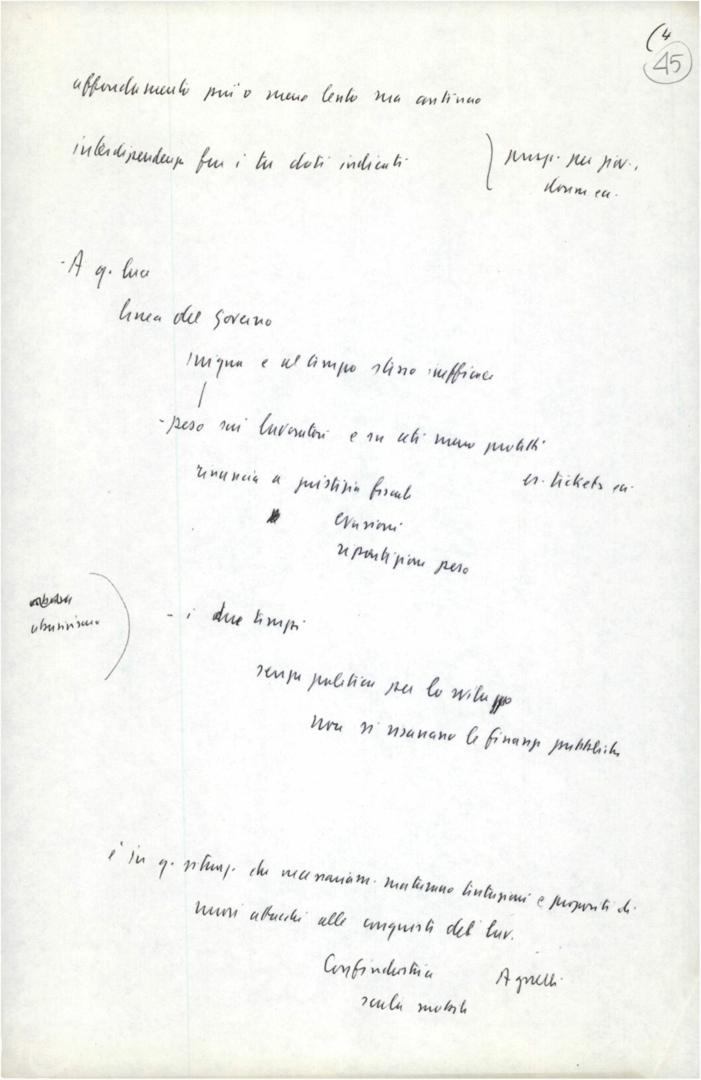 (4
45
affondamento più o meno lento ma continuo
interdipendenza fra i tre dati indicati
prosp. per giov.,
donne ecc.
- A q. luce
linea del governo
iniqua e al tempo stesso inefficace
- peso sui lavoratori e su ceti meno protetti
rinuncia a giustizia fiscale
es. tickets ecc.
evasioni
ripartizione peso
abusivismo
- i due tempi
senza politica per lo sviluppo
non si risanano le finanze pubbliche
è in q. situaz. che necessariam. maturano tentazioni e propositi di
nuovi attacchi alle conquiste del lav.
Confindustria Agnelli
scala mobile